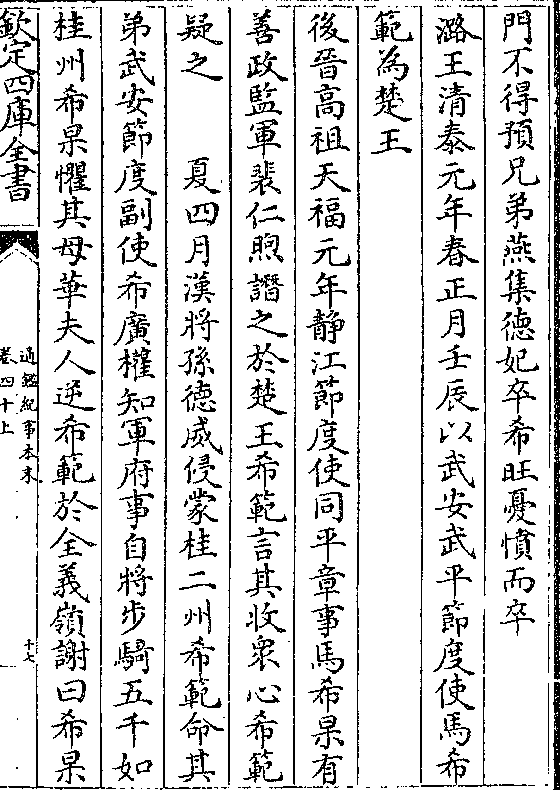 門不得預兄弟燕集德妃卒希旺憂憤而卒
潞王清泰元年春正月壬辰以武安武平節度使馬希
範為楚王
後晉高祖天福元年靜江節度使同平章事馬希杲有
善政監軍裴仁煦譖之於楚王希範言其收衆心希範
疑之　夏四月漢將孫德威侵蒙桂二州希範命其
弟武安節度副使希廣權知軍府事自將步騎五千如
桂州希杲懼其母華夫人逆希範於全義嶺謝曰希杲
欽定四庫全書
通鑑紀事本末
卷四十上
十七